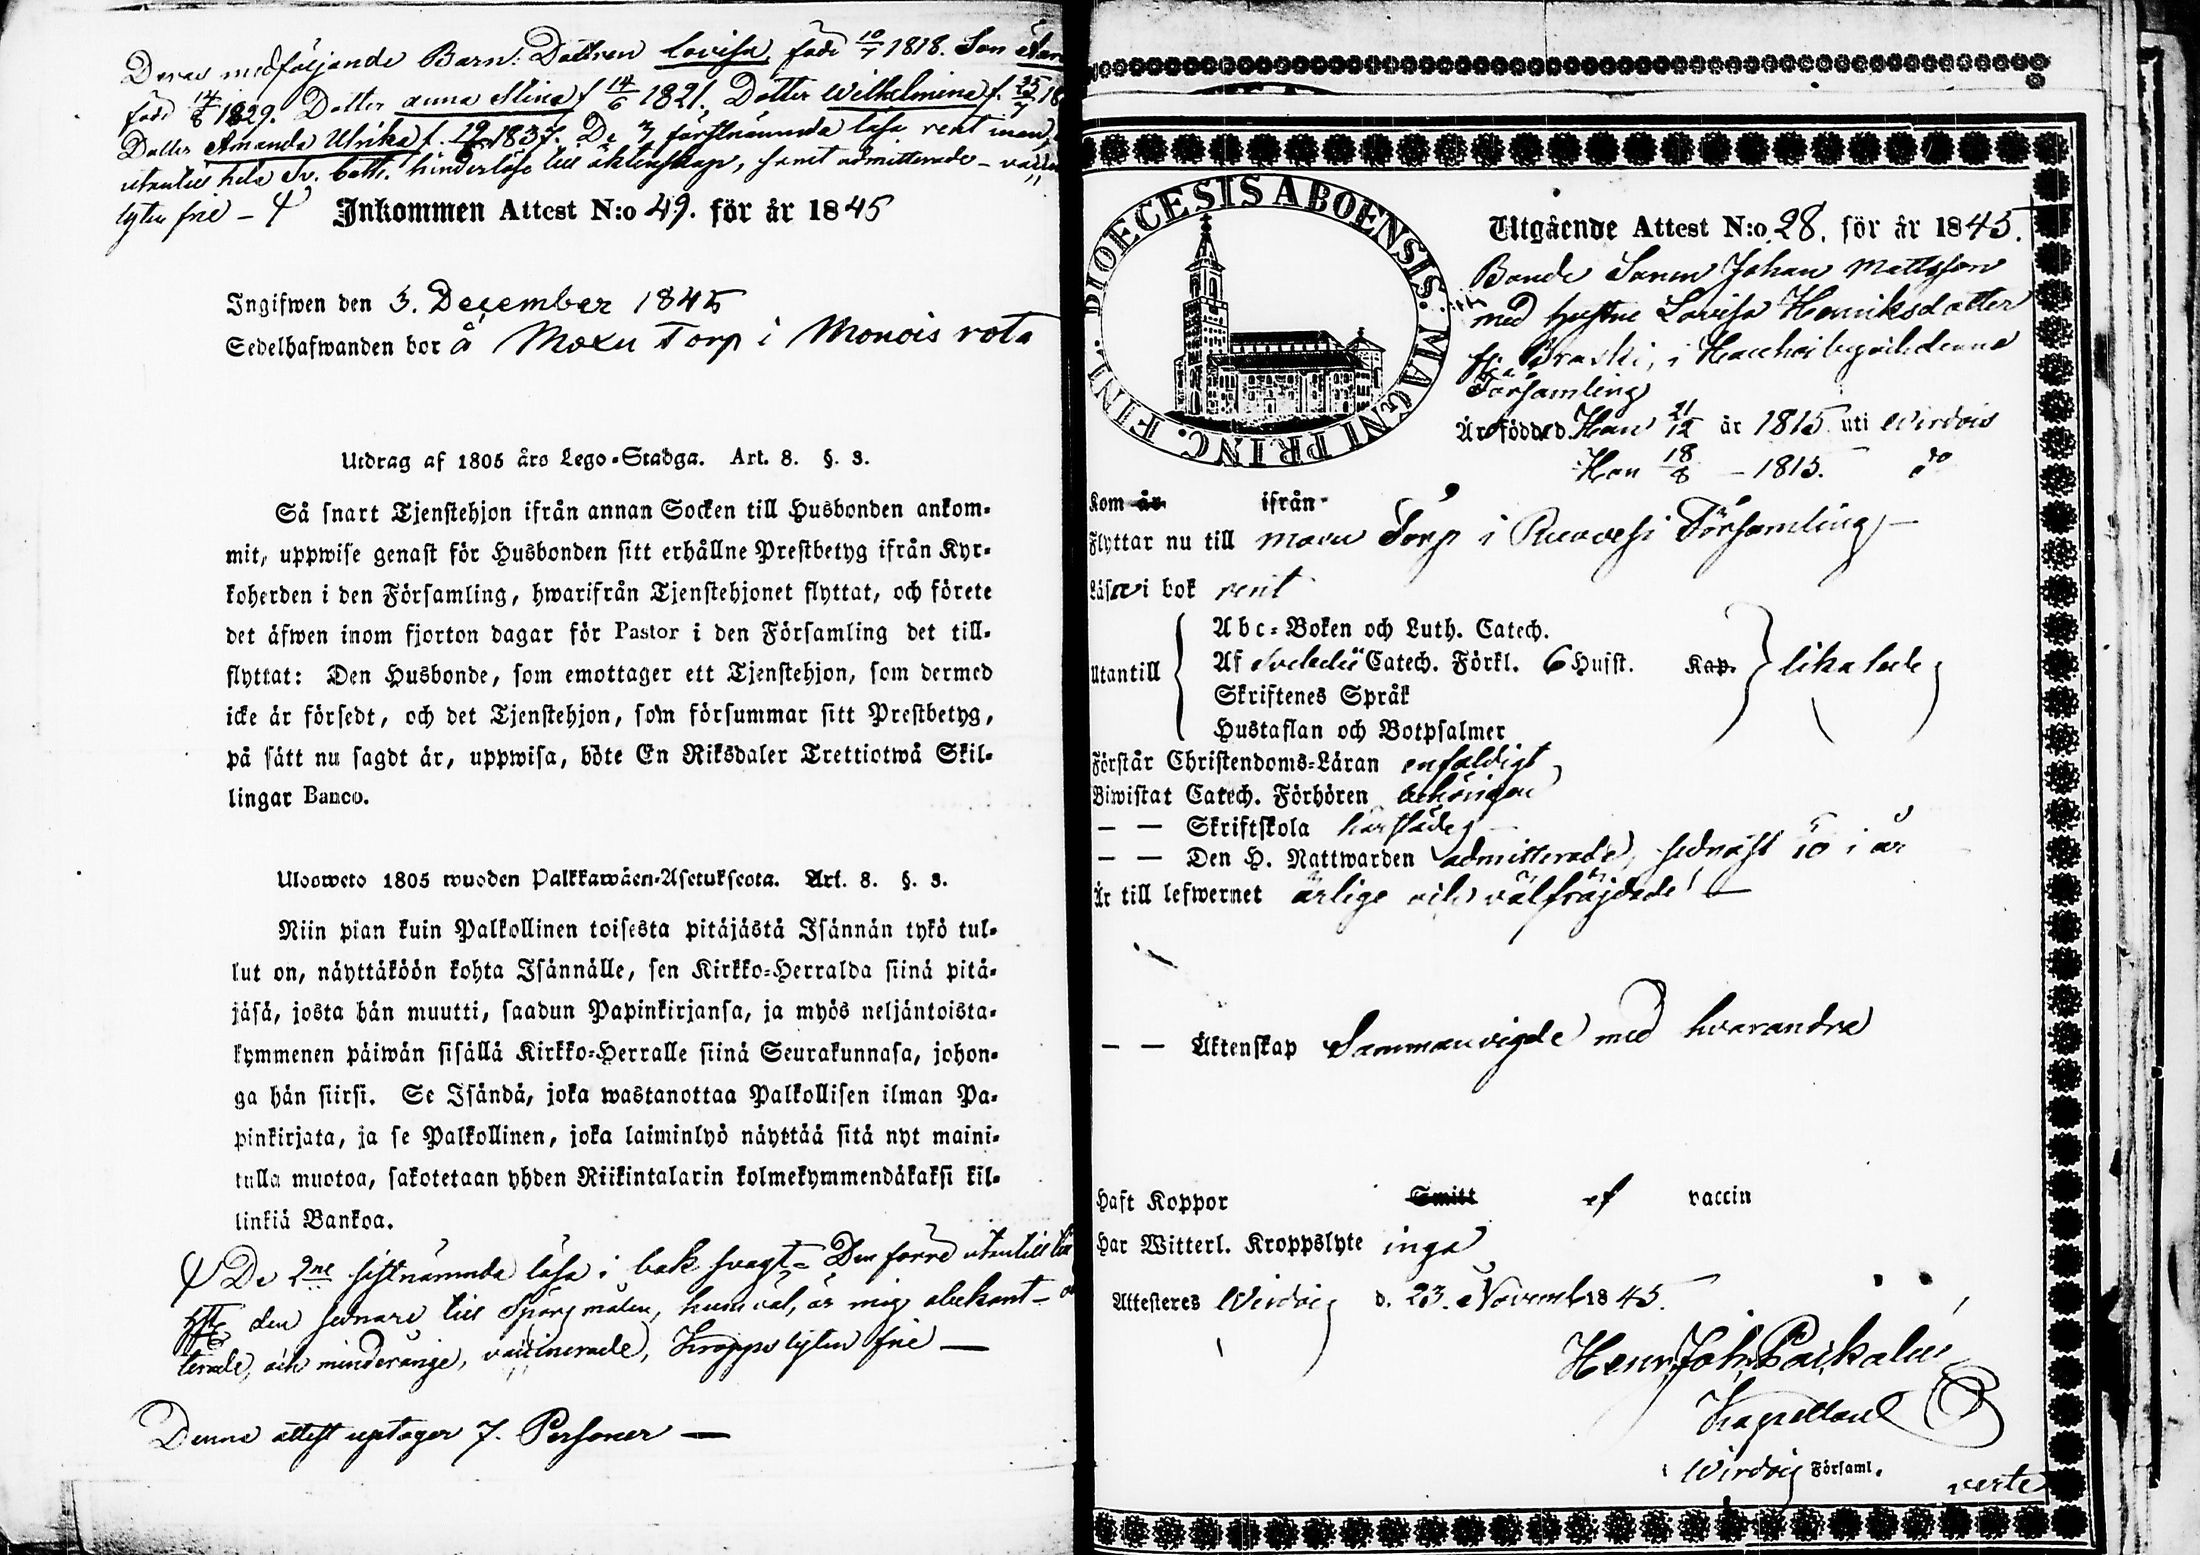 Deras medföljande Barn: Dottren Lovisa, född 10/7 1818. Son
född 14/8 1829. Dotter Anna Stina f 14/6 1821. Dotter Wilhelmina f. 25/7 18
Dotter Amanda Ulrika f. 1837. De 3 förstnämnda läsa rent innan,
utantill hela Sv. Cath. hinderlöse till äktenskap, samt admitterade -
lyten frie -
Inkommen Attest N:o 49. för år 1845
Ingifwen den 3. December 1845
Sedelhafwanden bor å Moxu Torp i Monois rota
Utdrag af 1805 års Lego-Stadga. Art. 8. §. 3.
Så snart Tjenstehjon ifrån annan Socken till Husbonden ankom-
mit, uppwise genast för Husbonden sitt erhållne Prestbetyg ifrån Kyr-
koherden i den Församling, hwarifrån Tjenstehjonet flyttat, och förete
det äfwen inom fjorton dagar för Pastor i den Församling det till-
flyttat: Den Husbonde, som emottager ett Tjenstehjon, som dermed
icke är försedt, och det Tjenstehjon, som försummar sitt Prestbetyg,
på sätt nu sagdt är, uppwisa, böte En Riksdaler Trettiotwå Skil-
lingar Banco.
Ulosweto 1805 wuoden Palkkawäen-Asetuksesta. Art. 8. §. 3.
Niin pian kuin Palkollinen toisesta pitäjästä Isännän tykö tul-
lut on, näyttäköön kohta Isännälle, sen Kirkko-Herralda siinä pitä-
jäsä, josta hän muutti, saadun Papinkirjansa, ja myös neljäntoista-
kymmenen päiwän sisällä Kirkko-Herralle siinä Seurakunnasa, johon-
ga hän siirsi. Se Isändä, joka wastanottaa Palkollisen ilman Pa-
pinkirjata, ja se Palkollinen, joka laiminlyö näyttää sitä nyt maini-
tulla muotoa, sakotetaan yhden Riikintalarin kolmekymmendäkaksi kil-
linkiä Bankoa.
De 2ne sistnämnda läsa i bok svagt - Den förre utantill
den sednare till Spörgmålen, huru väl, är mig obekant -
terade, och minderårige, vaccinerade, Kropps lyten frie —
Denna attest uptager 7. Personer —
DIOECESIS ABOENSIS. MAGNI PRINC. FINL.
Utgående Attest N:o 28. för år 1845.
Bonde Sonen Johan Mattsson
med hustru Lovisa Henriksdotter
Församling
Är född Han 21/12 år 1815 uti Wirdois
Hon 18/8 - 1815. do
Kom år ifrån
Flyttar nu till Moxu Torp i Ruovesi Församling, —
Läsa i bok rent
Utantill
Abc-Boken och Luth. Catech.
Af Svebelii Catech. Förkl. 6 Hufst. Kap. lika lede
Skriftenes Språk
Hustaflan och Botpsalmer
Förstår Christendoms-Läran enfaldigt
Biwistat Catech. Förhören behörigen
— — Skriftskola härstädes
— — Den H. Nattwarden admitterade, sednast i år
Är till lefwernet ärlige och välfräjdade! —
— — Äktenskap Sammanvigde med hvarandra
Haft Koppor Smitt af vaccin
Har Witterl. Kroppslyte inga
Attesteres Wirdois d. 23. Novemb 1845.
Henr. Joh.
Kapellan
i Wirdois Församl.
verte